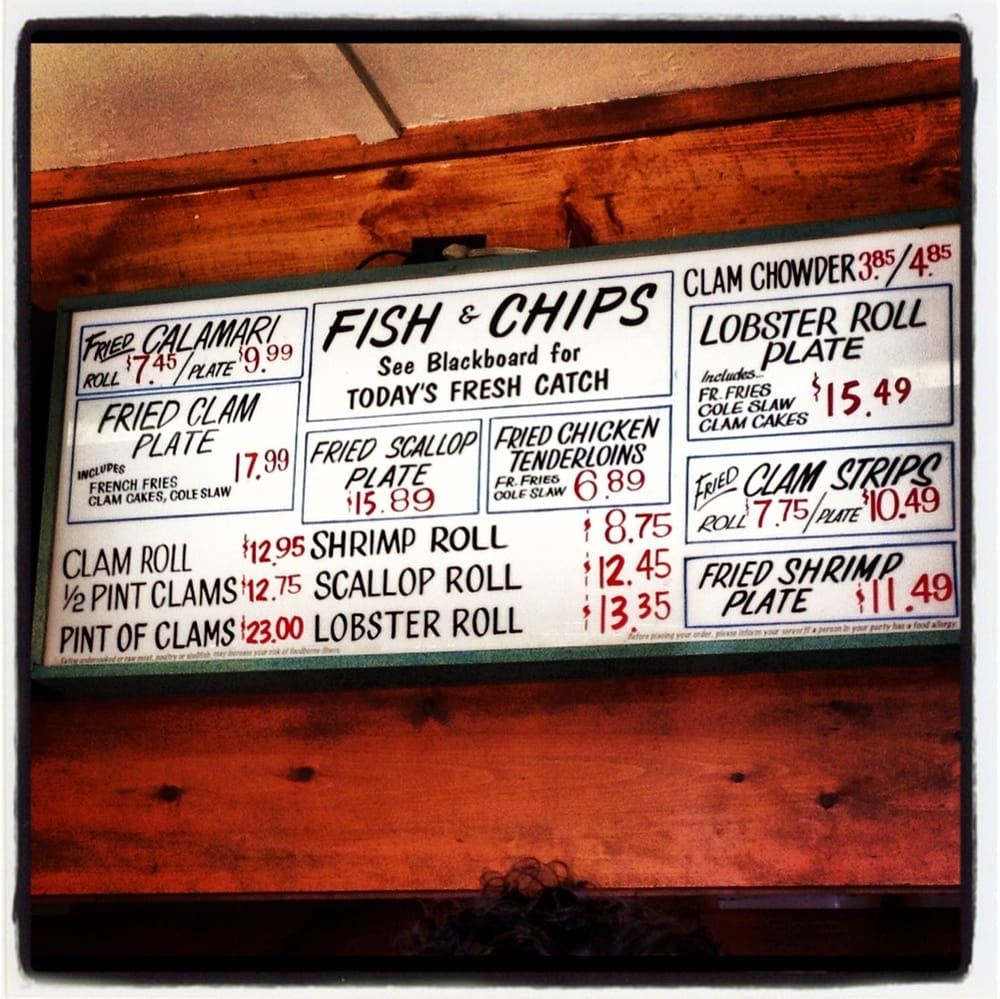 FRIED CALAMARI
ROLL $7.45/PLATE $9.99
FRIED CLAM
PLATE
INCLUDES
FRENCH FRIES
CLAM CAKES, COLE SLAW
17.99
FISH & CHIPS
See Blackboard for
TODAY'S FRESH CATCH
FRIED SCALLOP
PLATE
$15.89
FRIED CHICKEN
TENDERLOINS
FR. FRIES
COLE SLAW
6.89
CLAM CHOWDER 3.85/4.85
LOBSTER ROLL
PLATE
Includes...
FR. FRIES
COLE SLAW
CLAM CAKES
$15.49
FRIED CLAM STRIPS
ROLL $7.75/PLATE $10.49
FRIED SHRIMP
PLATE $11.49
CLAM ROLL $12.95
1/2 PINT CLAMS $12.75
PINT OF CLAMS $23.00
SHRIMP ROLL $8.75
SCALLOP ROLL $12.45
LOBSTER ROLL $13.35
Eating undercooked or raw meat, poultry or shellfish may increase your risk of foodborne illness.
Before placing your order, please inform your server if a person in your party has a food allergy.